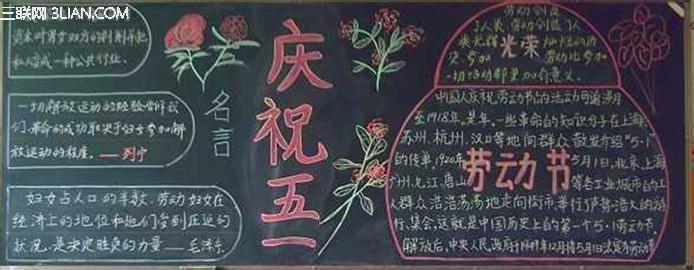 三联网 3LIAN.COM
私人造成一种公共行业.
名言
一切解放运动的经验告诉我
们,革命的成功取决于妇女参加解
放运动的程度.——列宁
妇女占人口的半数,劳动妇女在
经济上的地位和她们受到压迫的
状况,是决定胜负的力量——毛泽东
庆祝五一
劳动创造
了人类,劳动创造了人
类光辉灿烂的历
光荣
史,参加劳动比参加
一切活动都更加有意义.
中国人庆祝劳动节的活动可追溯
至1918年,是年,一些革命的知识分子在上海
苏州、杭州、汉口等地向群众散发介绍"5·1"
的传单,1920年5月1日,北京、上海
劳动节
广州、九江、唐山等各工业城市的工
人群众浩浩荡荡地走向街市,举行了声势浩大的游
行、集会,这就是中国历史上的第一个5·1劳动节.
解放后,中央人民政府于1949年12月将5月1日法定为劳动节